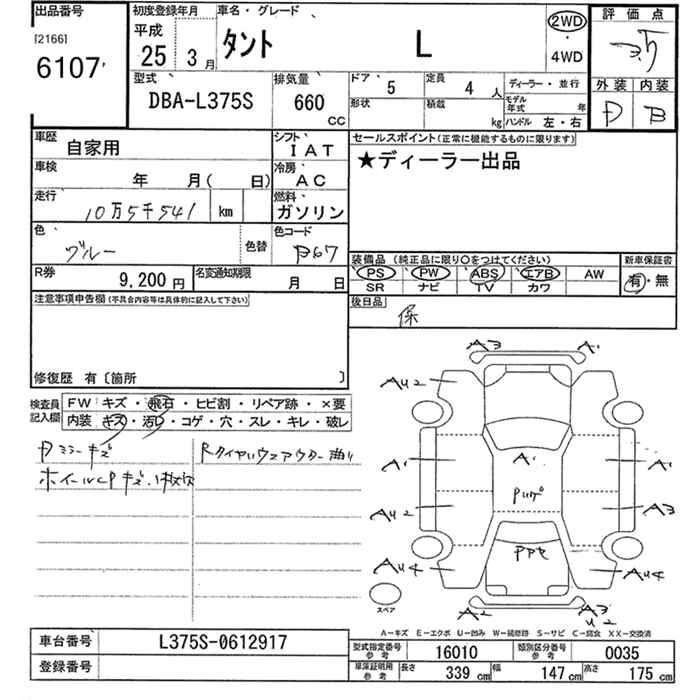 出品番号
[2166]
6107
初度登録年月
平成
25年 3月
車名・グレード
タント L
2WD
・
4WD
評価点
外装 内装
B
型式
DBA-L375S
排気量
660 CC
ドア 5
定員 4人
ディーラー・並行
形状
積載 kg
モデル年式 年
ハンドル 左・右
車歴 自家用
シフト IAT
車検 年 月( 日)
冷房 AC
走行 10万5千541 km
燃料 ガソリン
色 ブルー
色替
色コード B67
R券 9,200円
名変通知期限 月 日
セールスポイント(正常に機能するものに限ります)
★ディーラー出品
装備品 (純正品に限り〇をつけてください)
新車保証書
PS PW ABS エアB AW
SR ナビ TV カワ
有・無
後日品 保
注意事項申告欄(不具合内容等は具体的に記入して下さい)
修復歴 有〔箇所 〕
検査員記入欄
FW キズ・飛石・ヒビ割・リペア跡・×要
内装 キズ・汚レ・コゲ・穴・スレ・キレ・破レ
ミラーキズ
ホイールCPキズ、1枚欠
A3 A1
AU2
A1 A1 A1
AU2 A3
AU4 AU4
A2 A3
U2
スペア
A-キズ E-エクボ U-凹み W-補修跡 S-サビ C-腐食 XX-交換済
車台番号 L375S-0612917
登録番号
型式指定番号 参考 16010
類別区分番号 参考 0035
車庫証明用 参考 長さ 339 cm 幅 147 cm 高さ 175 cm